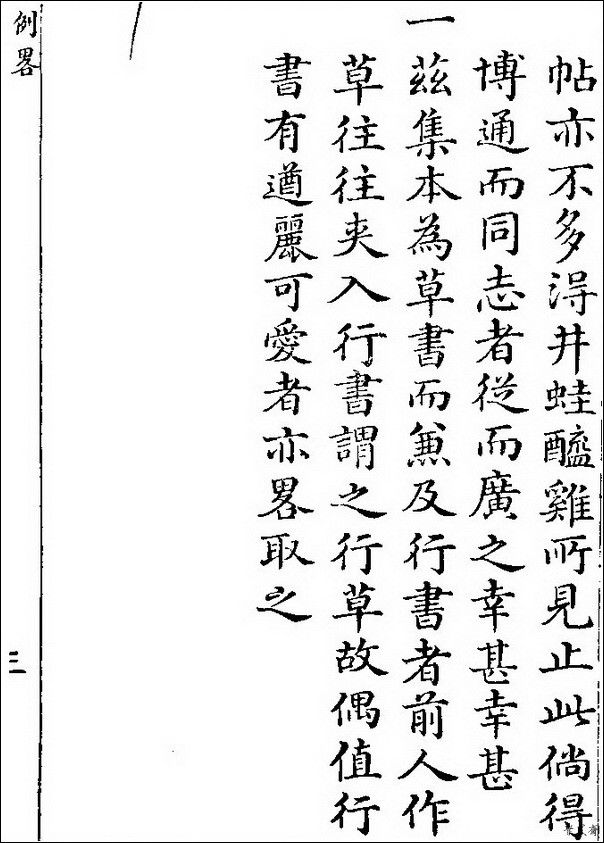 帖亦不多淂井蛙醯雞所見止此倘得
博通而同志者從而廣之幸甚幸甚
一茲集本為草書而兼及行書者前人作
草往往夾入行書謂之行草故偶值行
書有遒麗可愛者亦畧取之
例畧
三